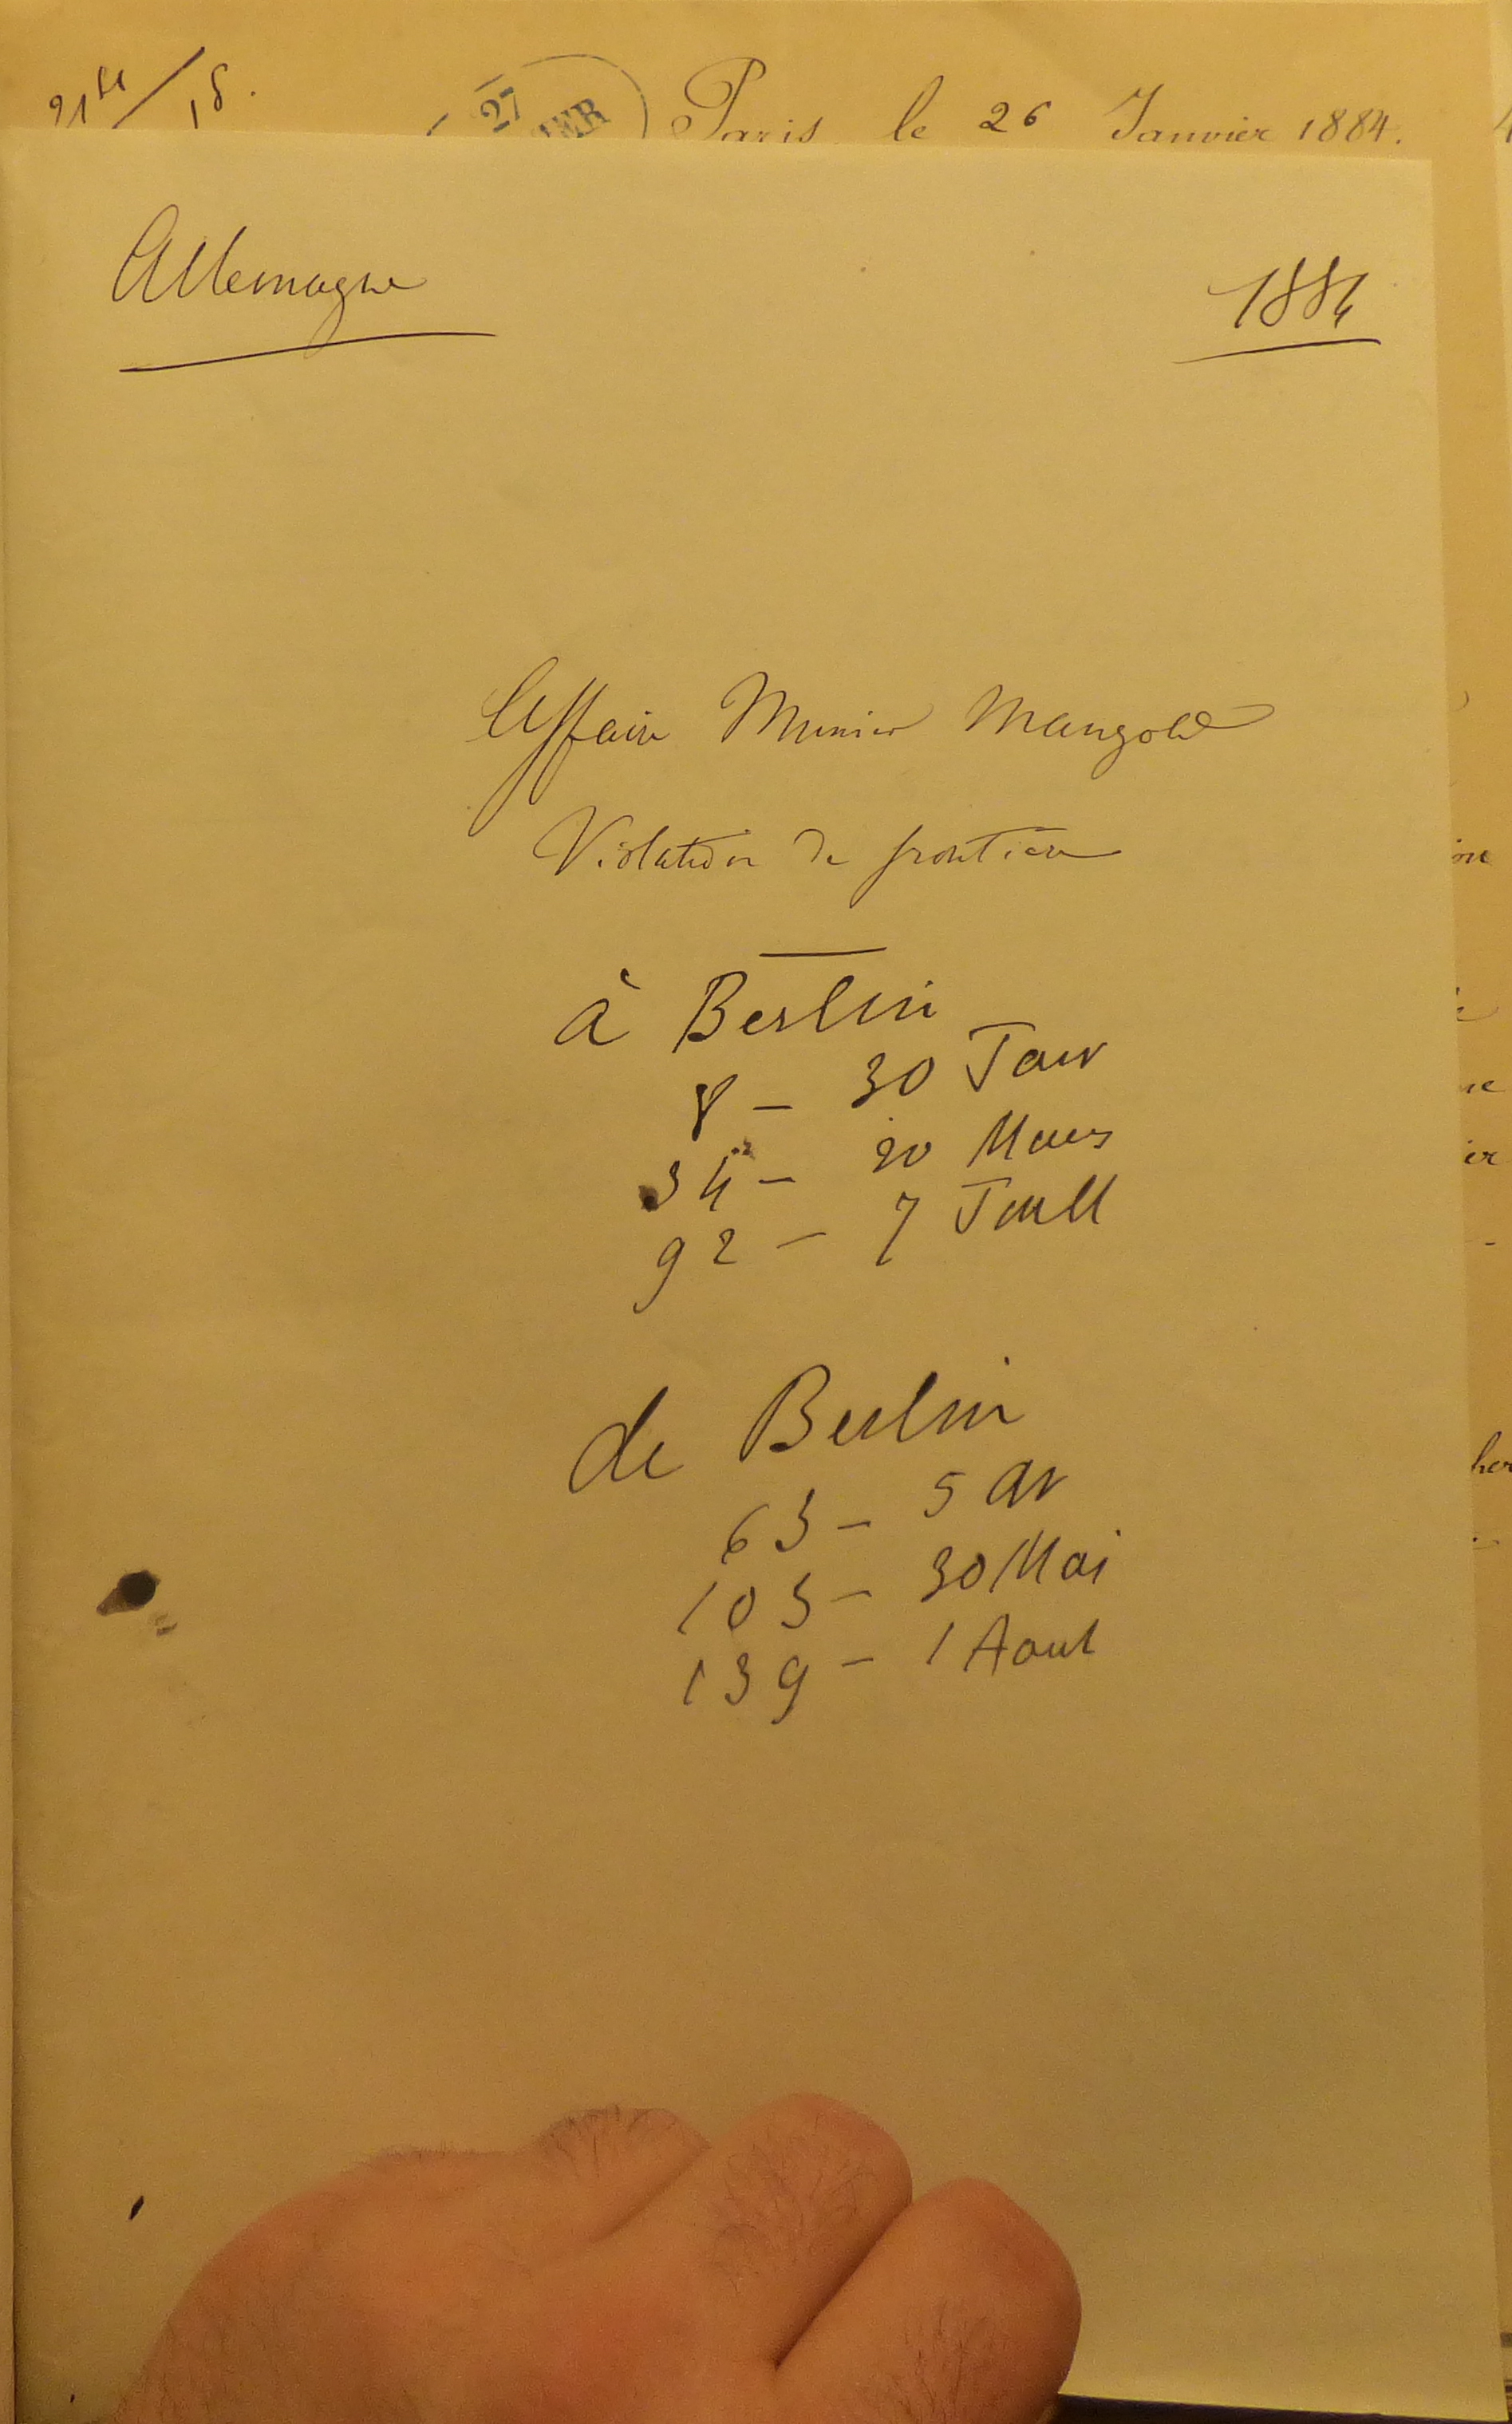 18.
27
IER
Paris, le 26 Janvier 1884.
Allemagne
1884
Affaire Munier Mangold
Violation de frontière
à Berlin
8 - 30 Janv
34 - 20 Mars
92 - 7 Juill
de Berlin
63 - 5 Av
103 - 30 Mai
139 - 1 Aout